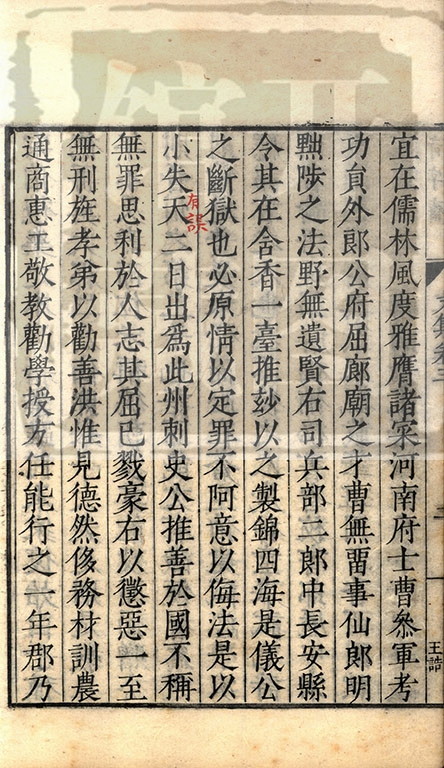 宜在儒林風度雅膺諸寀河南府士曹叅軍考
功貟外郎公府屈廊廟之才曹無畱事仙郎明
黜陟之法野無遺賢右司兵部二郎中長安縣
令其在舍香一臺推玅以之製錦四海是儀公
之斷獄也必原情以定罪不阿意以侮法是以
小失天二日出爲此州刺史公推善於國不稱
有誤
無罪思利於人志其屈已戮豪右以懲惡一至
無刑旌孝弟以勸善洪惟見德然後務材訓農
通商惠工敬教勸學授方任能行之一年郡乃
王誥